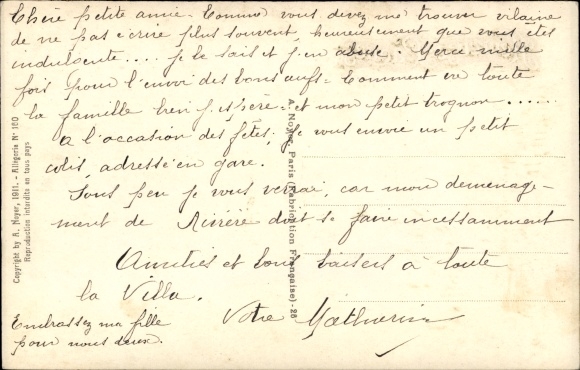 Chère petite amie - Comme vous devez me trouver vilaine
de ne pas écrire plus souvent, heureusement que vous êtes
indulgente.... je le sais et j'en abuse. Merci mille
fois pour l'envoi des bons œufs - Comment va toute
la famille bien j'espère - et mon petit trognon......
A l'occasion des fêtes, je vous envoie un petit
colis, adressé en gare.
Sous peu je vous verrai, car mon déménage-
ment de Rivière doit se faire incessamment
Amitiés et bons baisers à toute
la Villa.
Votre
Embrassez ma fille
pour nous deux.
Copyright by A. Noyer, 1911. - Allégorie N° 160
Reproduction interdite en tous pays
A. Noyer, Paris (Fabrication Française) - 26